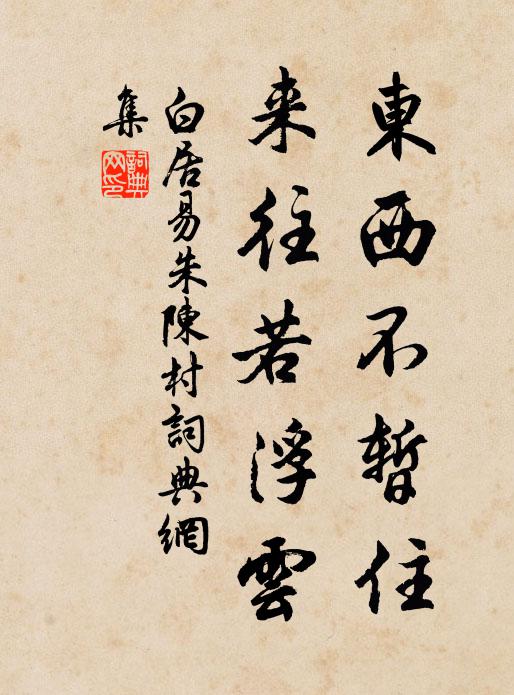 東西不暫住
来往若浮雲
白居易朱陳村詞典網
集
詞典網印